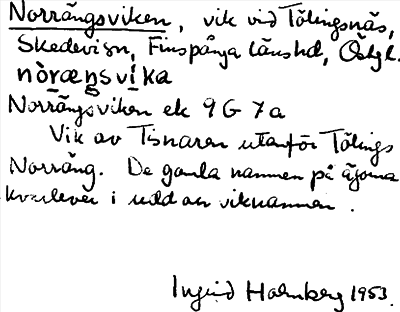 Norrängsviken, vik vid Tölingsnäs,
Skedevisn, Finspånga länshd, Östgl.
nòrængsvika
Norrängsviken ek 9G 7a
Vik av Tisnaren utanför Tölings
Norräng. De gamla namnen på ägorna
kvarlever i udd och viknamnen.
Ingrid Holmberg 1953.